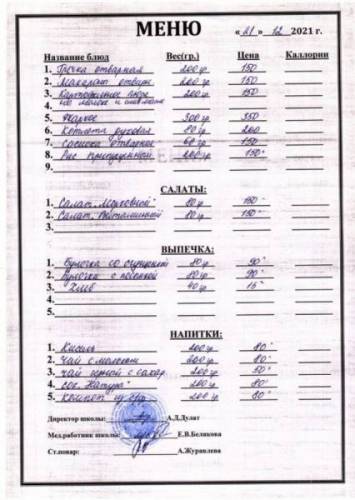 МЕНЮ
« 21 » 12 2021 г.
Название блюд Вес(гр.) Цена Каллории
1. Гречка отварная 200 гр 150
2. Макароны отварн. 200 гр 150
3. Картофельное пюре 200 гр 150
4. на молоке и слив. масле
5. Жаркое 300 гр 350
6. Котлета духовая 80 гр 200
7. Сосиска отварная 60 гр 150
8. Рис припущенный 200 гр 150
9.
САЛАТЫ:
1. Салат "Морковный" 80 гр 150
2. Салат "Витаминный" 80 гр 150
3.
ВЫПЕЧКА:
1. Булочка со сгущенкой 80 гр 90
2. Булочка с 80 гр 90
3. Хлеб 40 гр 15
4.
5.
НАПИТКИ:
1. Кисель 200 гр 80
2. Чай с молоком 200 гр 80
3. Чай черный с сахар 200 гр 50
4. Сок 200 гр 80
5. Компот из с/ф 200 гр 80
Директор школы: А.Д.Дулат
Мед.работник школы: Е.В.Белякова
Ст.повар: А.Журавлева